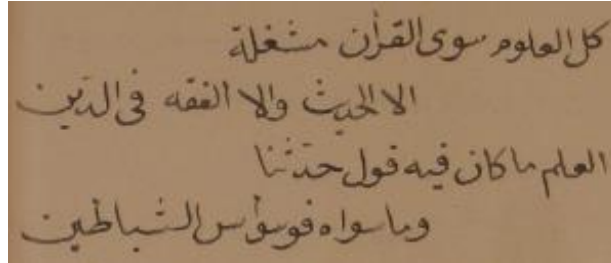 كل العلوم سوى القرأن مشغلة
الا الحديث والا الفقه فى الدين
العلم ماكان فيه قول حدثنا
وماسواه فوسواس الشياطين